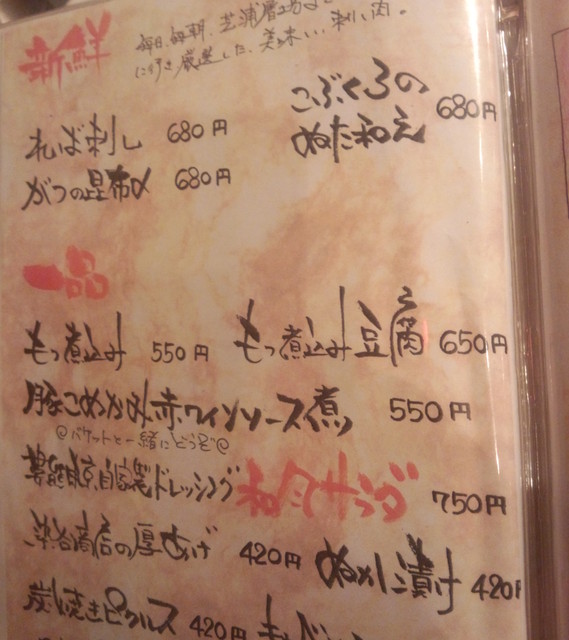 新鮮
毎日、毎朝、芝浦
に行き厳選した、美味い、刺し肉。
れば刺し 680円
こぶくろの
ぬた和え 680円
がつの昆布〆 680円
一品
もつ煮込み 550円
もつ煮込み豆腐 650円
豚こめかみ赤ワインソース煮 550円
@バケットと一緒にどうぞ@
自家製ドレッシング サラダ 750円
の厚あげ 420円
漬け 420円
炭焼きピクルス 420円